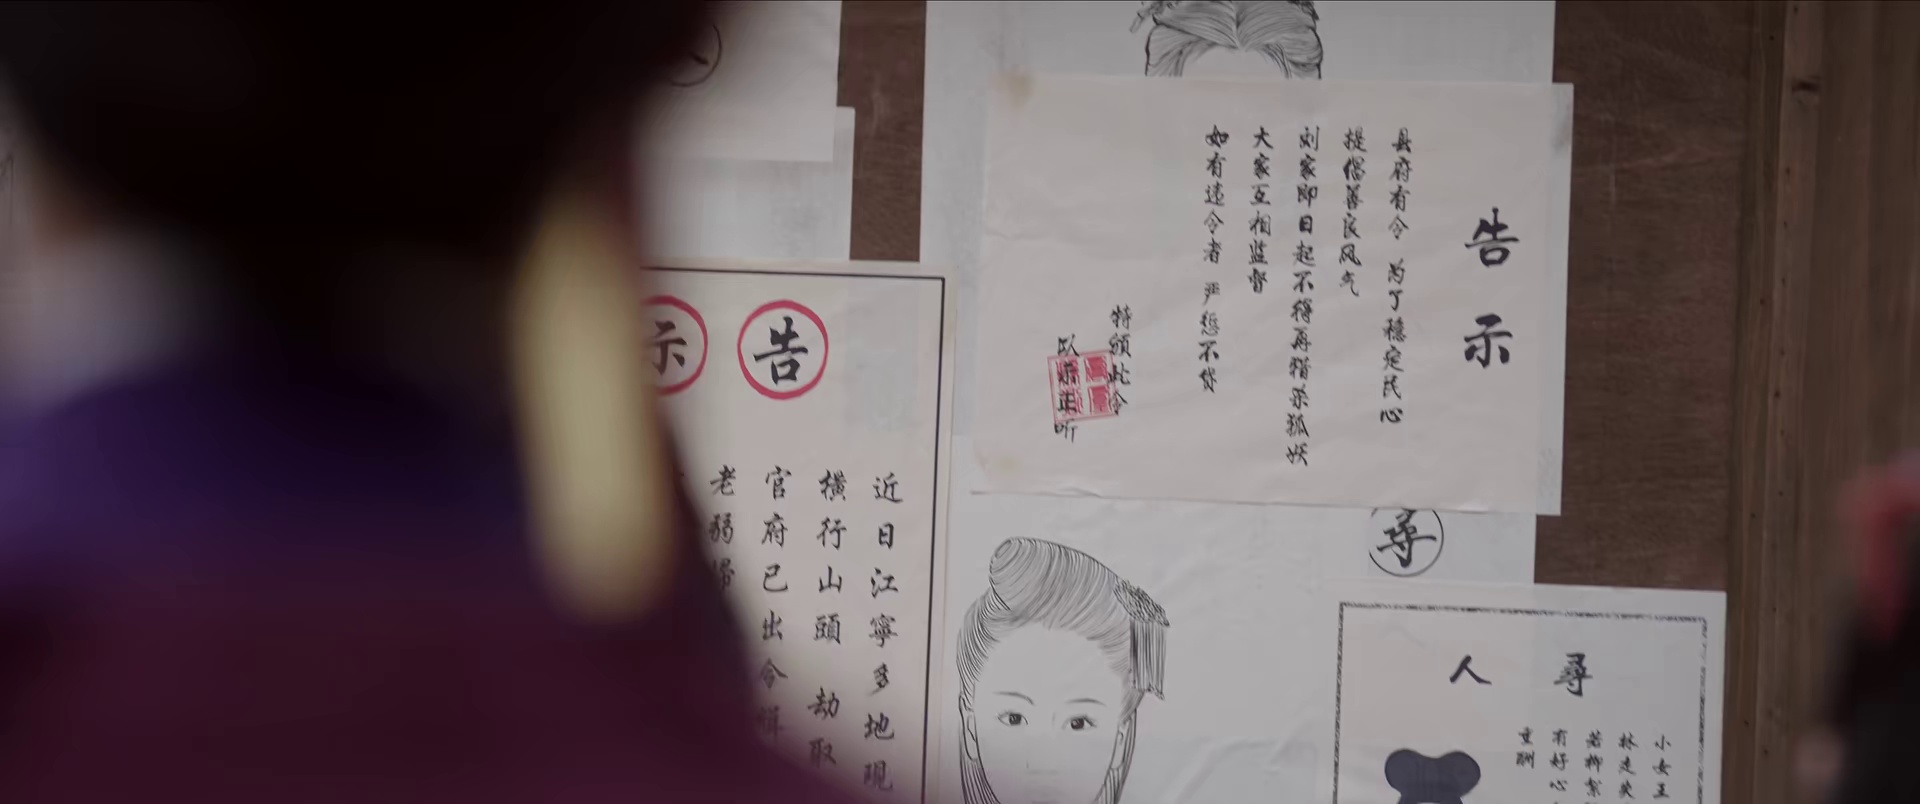 告示
县府有令 为了稳定民心
提倡善良风气
刘家即日起不得再猎杀狐妖
大家互相监督
如有违令者 严惩不贷
特颁此令
以正听
告示
近日江寧多地現
橫行山頭 劫取
官府已出令緝
老弱婦
尋
尋人
小女王
林走失
若
有好心
重酬